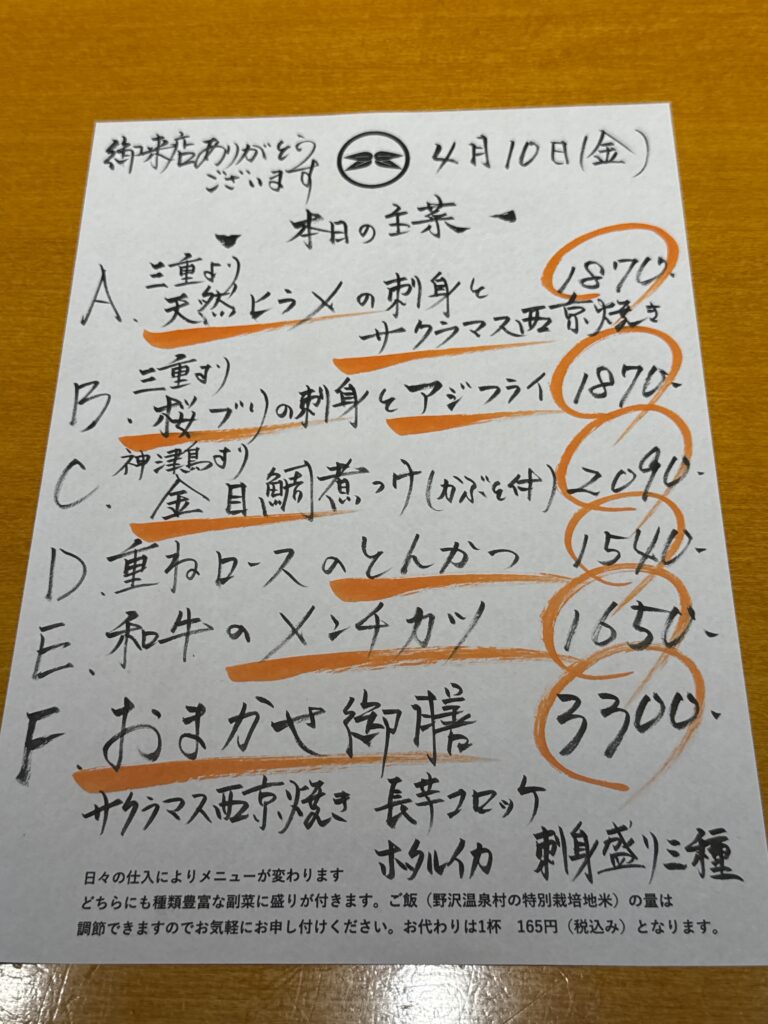 御来店ありがとう
ございます
4月10日(金)
本日の主菜
A. 三重より
天然ヒラメの刺身と 1870.
サクラマス西京焼き
B. 三重より
桜ブリの刺身とアジフライ 1870-
C. 神津島より
金目鯛煮つけ(かぶと付) 2090-
D. 重ねロースのとんかつ 1540-
E. 和牛のメンチカツ 1650-
F. おまかせ御膳 3300-
サクラマス西京焼き 長芋コロッケ
ホタルイカ 刺身盛り三種
日々の仕入によりメニューが変わります
どちらにも種類豊富な副菜に盛りが付きます。ご飯（野沢温泉村の特別栽培地米）の量は
調節できますのでお気軽にお申し付けください。お代わりは1杯　165円（税込み）となります。